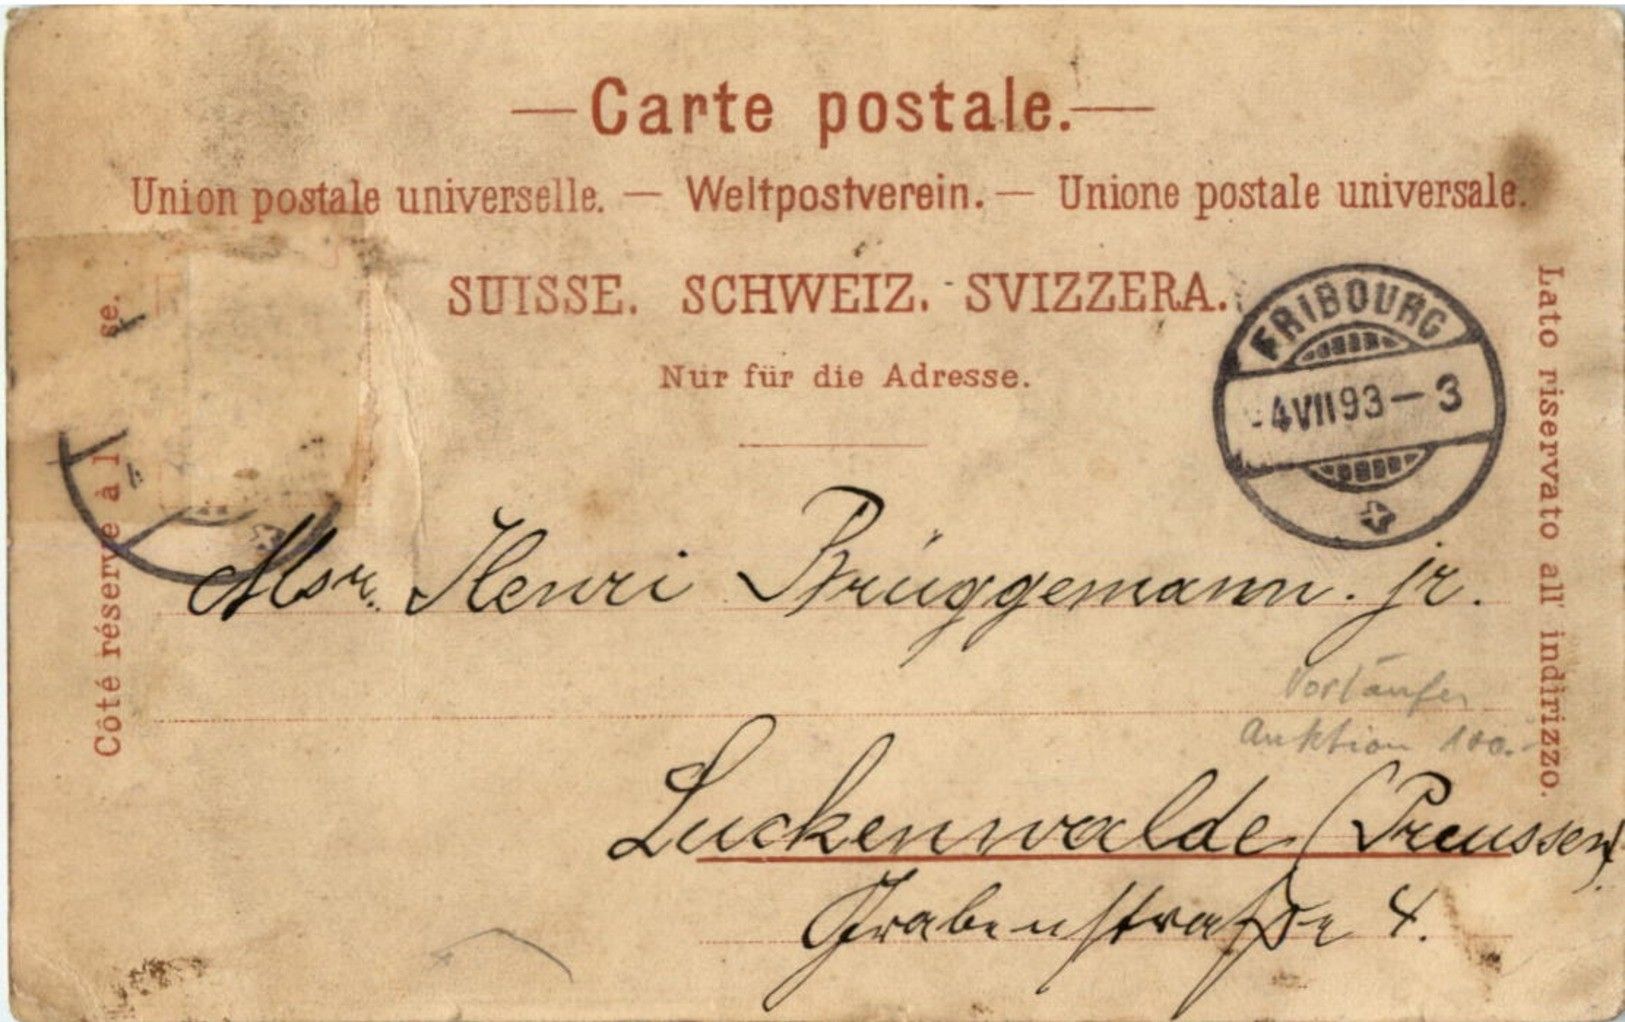 Carte postale.
Union postale universelle. — Weltpostverein. — Unione postale universale.
SUISSE. SCHWEIZ. SVIZZERA.
Nur für die Adresse.
Côté réservé à l' se.
Lato riservato all' indirizzo.
FRIBOURG
-4 VII 93 — 3
Msr. Henri Brüggemann. jr.
Vorläufer
Auktion 100.-
Luckenwalde (Preussen).
Grabenstraße 4.